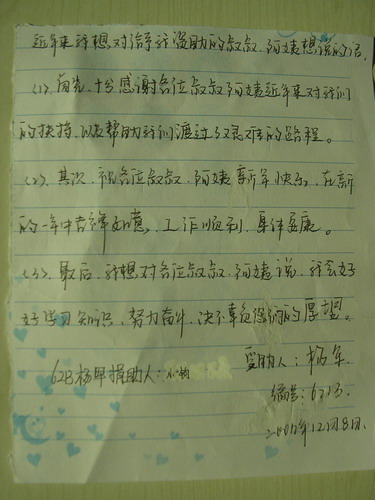 近年来我想对给予我资助的叔叔、阿姨想说的话
(1)、首先,十分感谢各位叔叔阿姨近年来对我们
的扶持,以及帮助我们渡过了艰难的路程。
(2)、其次,祝各位叔叔、阿姨新年快乐,在新
的一年中吉祥如意、工作顺利、身体健康。
(3)、最后,我想对各位叔叔、阿姨说,我会好
好学习知识,努力奋斗,决不辜负你们的厚望。
受助人:杨军
62B杨军捐助人:小钩
编号:62B.
年12月8日.